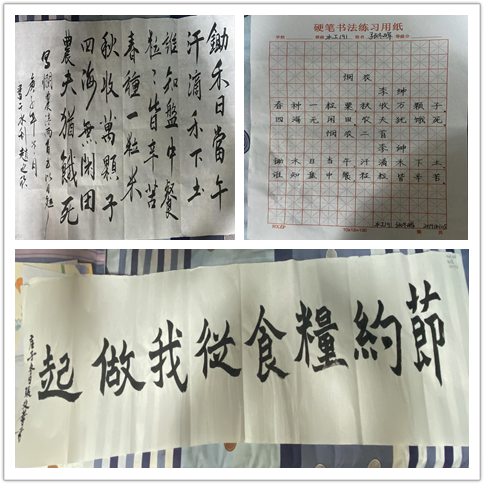 鋤禾日當午
汗滴禾下土
誰知盤中餐
粒粒皆辛苦
春種一粒
秋收萬顆子
四海無閑田
農夫猶餓死
庚子年
硬笔书法练习用纸
水工191
悯农
李绅
春种一粒粟秋收万颗子
四海无闲田农夫犹饿死
悯农二首
李绅
锄禾日当午汗滴禾下土
谁知盘中餐粒粒皆辛苦
水工191
節約糧食從我做起
庚子冬月